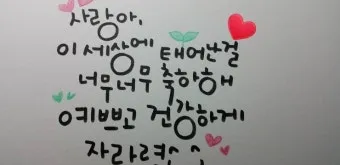 사랑아,
이 세상에 태어난걸
너무너무 축하해
예쁘고 건강하게
자라렴^^